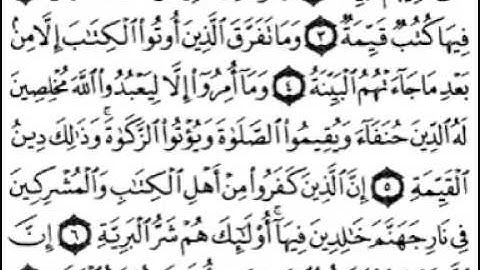 فِيهَا كُتُبٌ قَيِّمَةٌ ٣ وَمَا تَفَرَّقَ ٱلَّذِينَ أُوتُوا۟ ٱلْكِتَٰبَ إِلَّا مِنۢ
بَعْدِ مَا جَآءَتْهُمُ ٱلْبَيِّنَةُ ٤ وَمَآ أُمِرُوٓا۟ إِلَّا لِيَعْبُدُوا۟ ٱللَّهَ مُخْلِصِينَ
لَهُ ٱلدِّينَ حُنَفَآءَ وَيُقِيمُوا۟ ٱلصَّلَوٰةَ وَيُؤْتُوا۟ ٱلزَّكَوٰةَ ۚ وَذَٰلِكَ دِينُ
ٱلْقَيِّمَةِ ٥ إِنَّ ٱلَّذِينَ كَفَرُوا۟ مِنْ أَهْلِ ٱلْكِتَٰبِ وَٱلْمُشْرِكِينَ
فِى نَارِ جَهَنَّمَ خَٰلِدِينَ فِيهَآ ۚ أُو۟لَٰٓئِكَ هُمْ شَرُّ ٱلْبَرِيَّةِ ٦ إِنَّ